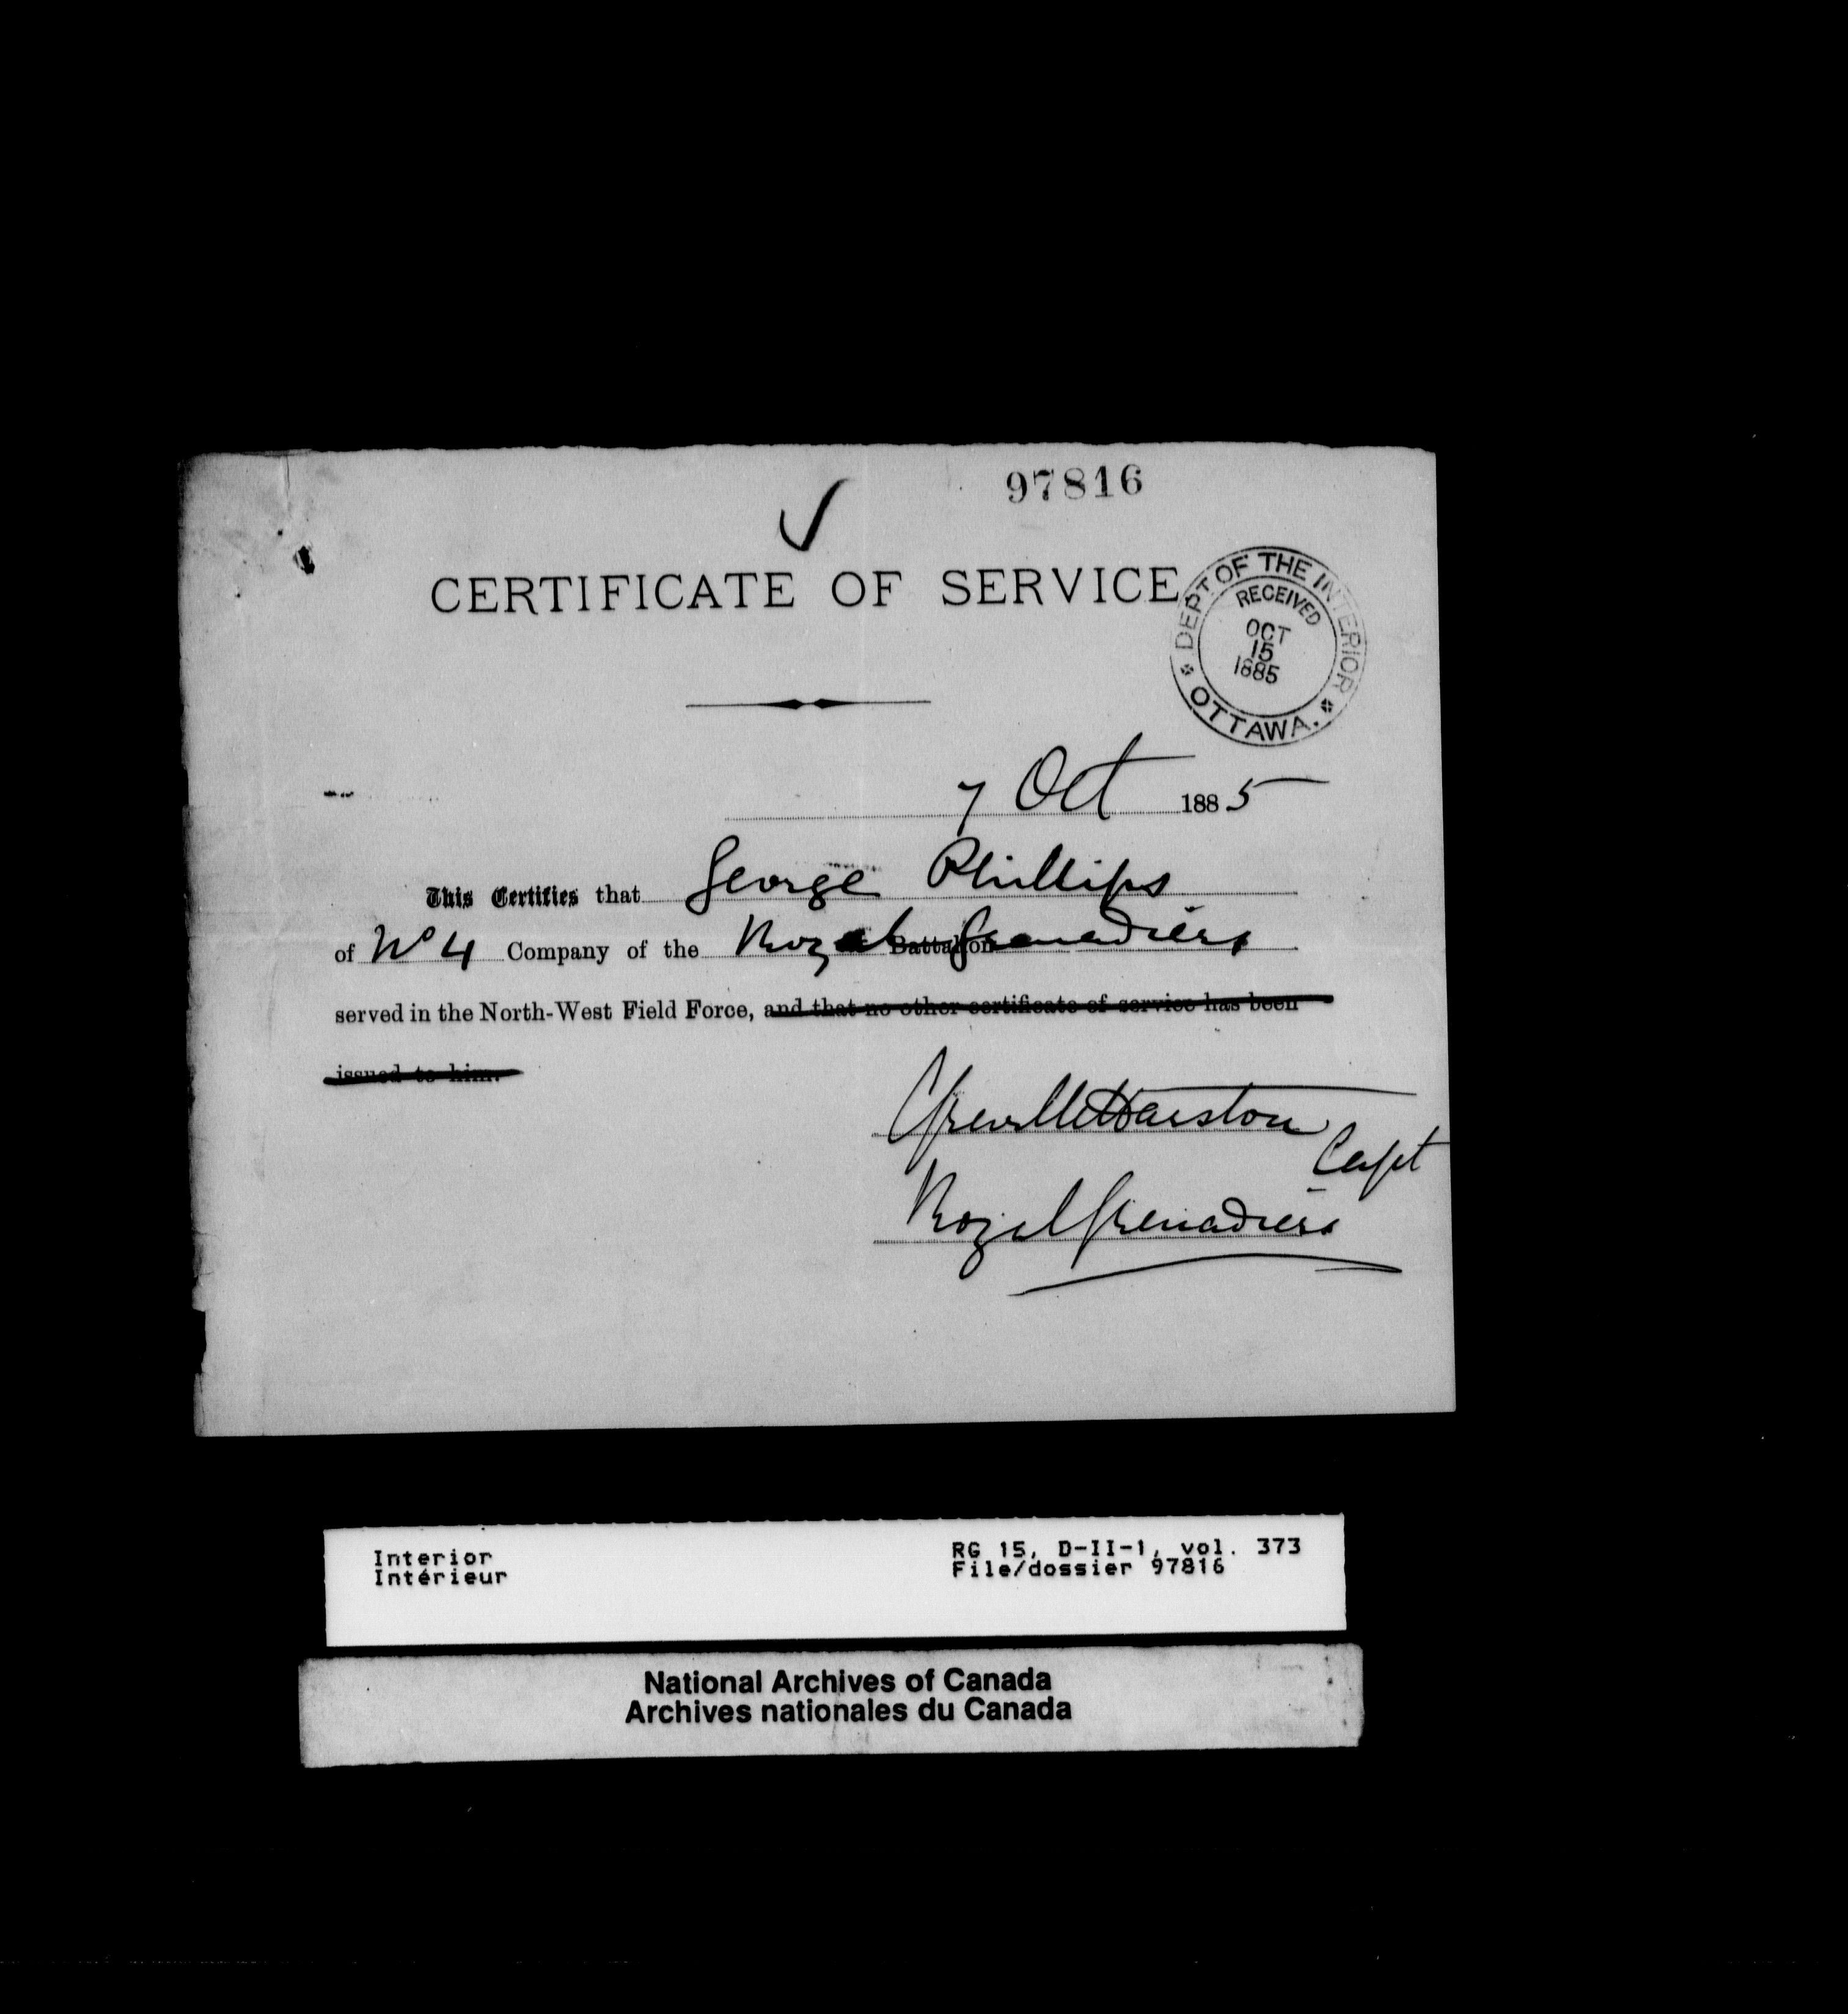 97816
CERTIFICATE OF SERVICE
DEPT OF THE INTERIOR
RECEIVED
OCT
15
1885
OTTAWA.
7 Oct 1885
This Certifies that George Phillips
of No 4 Company of the Royal Battalion Grenadiers
served in the North-West Field Force, and that no other certificate of service has been
issued to him.
Greville Harston
Capt
Royal Grenadiers
Interior
Intérieur
RG 15, D-II-1, vol. 373
File/dossier 97816
National Archives of Canada
Archives nationales du Canada